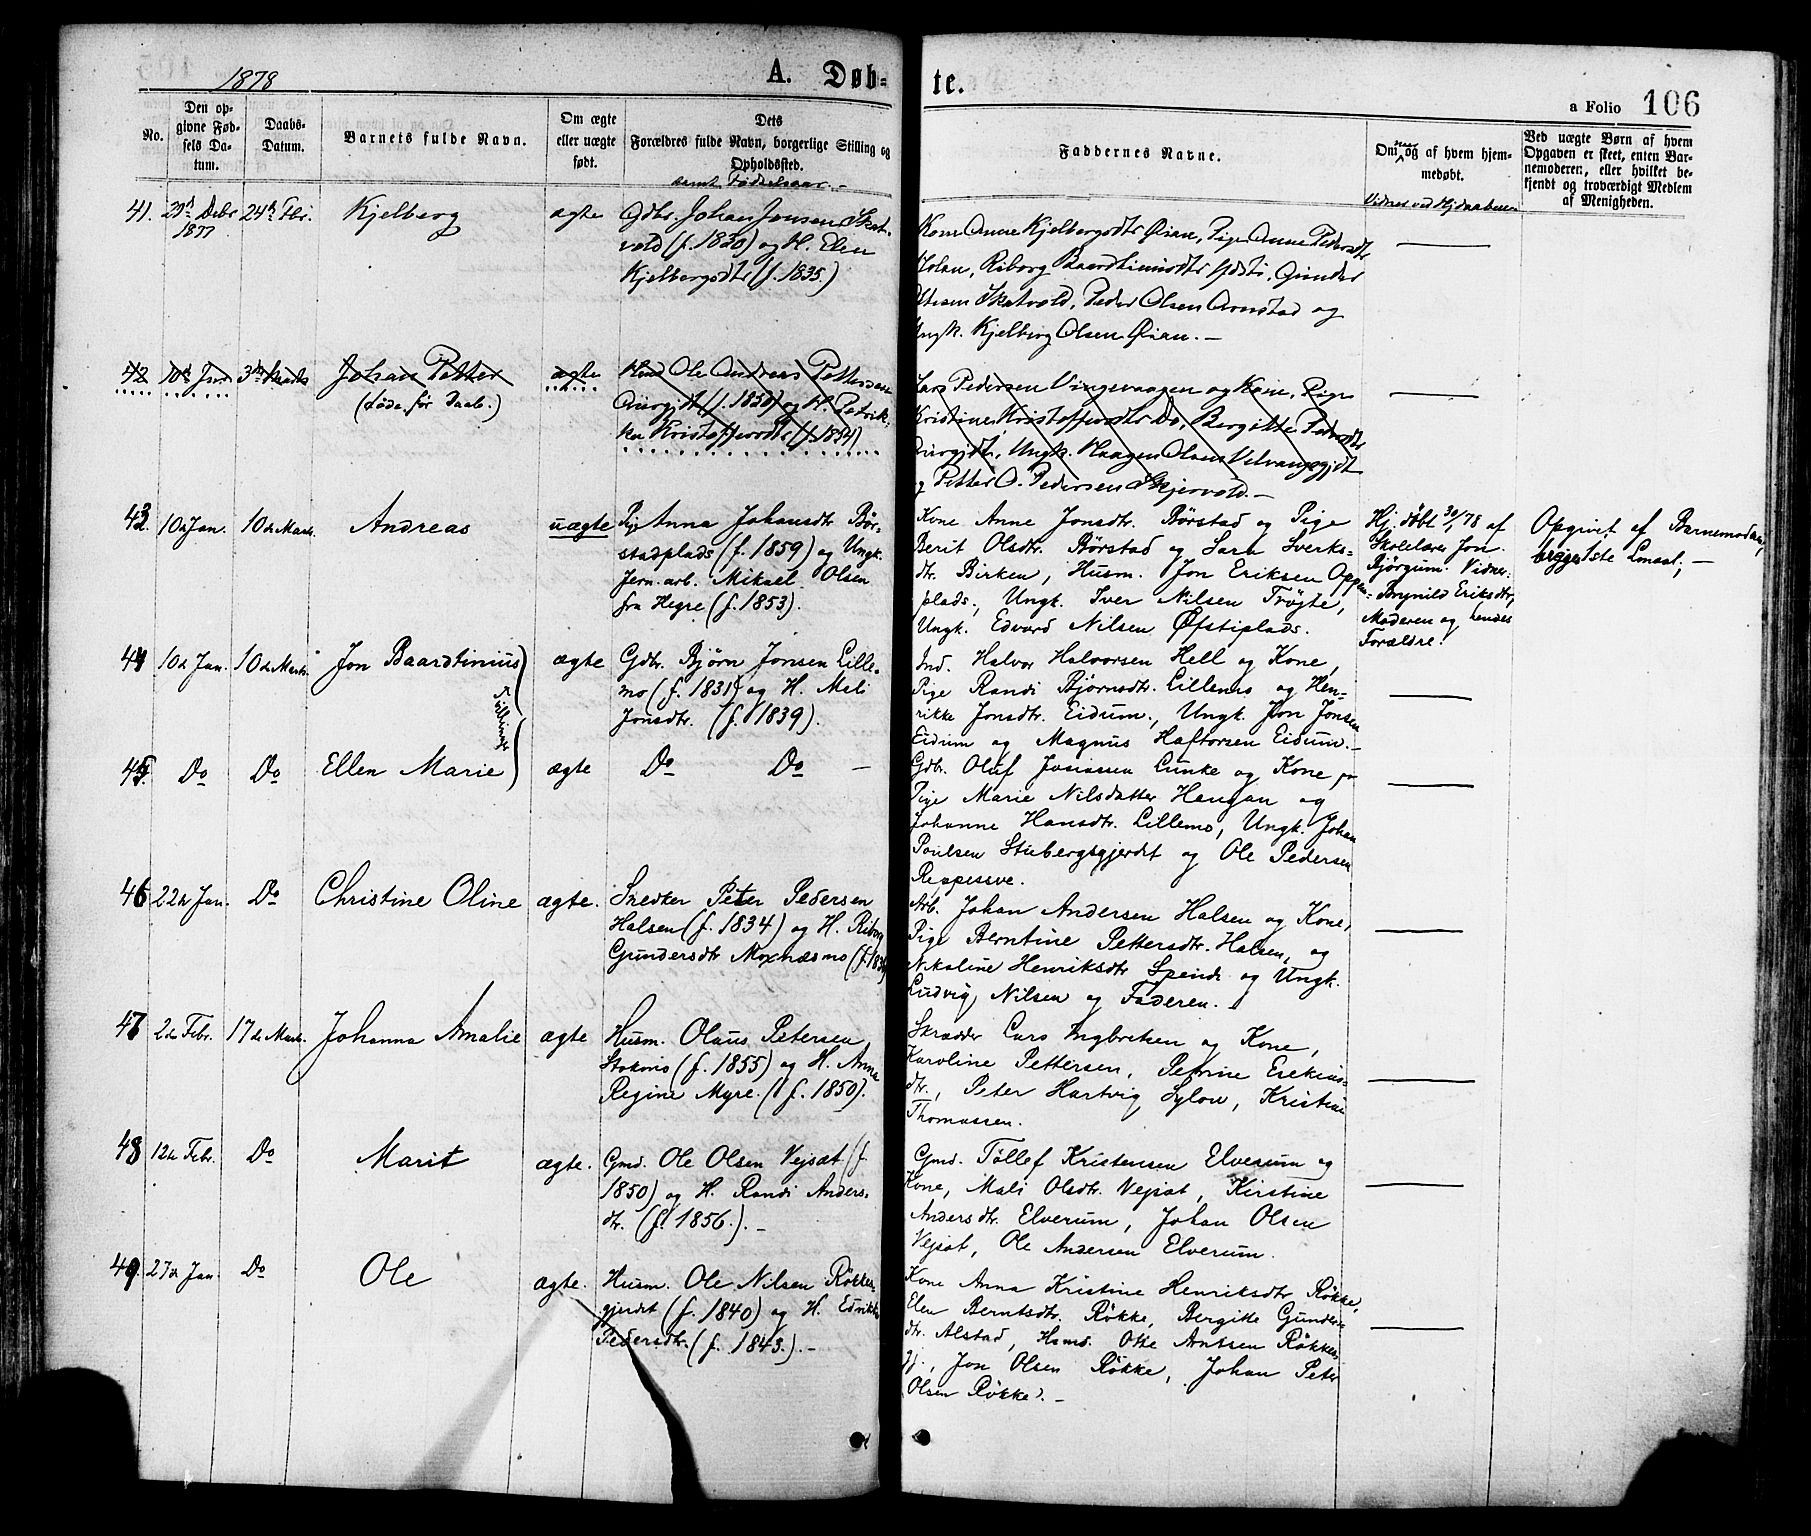 1878
A. Døb=
te.
a Folio 106
No.
Den op-
givne Fød-
sels Da-
tum.
Daabs-
Datum.
Barnets fulde Navn.
Om ægte
eller uægte
født.
Dets
Forældres fulde Navn, borgerlige Stilling og
Opholdssted.
samt Fødselsaar.-
Faddernes Navne.
Om naar og af hvem hjem-
medøbt.
Vidner ved Hjdaaben
Ved uægte Børn af hvem
Opgaven er skeet, enten Bar-
nemoderen, eller hvilket be-
kjendt og troværdigt Medlem
af Menigheden.
41. 29d Debr 24d Fbr. Kjelberg ægte Gdbr. Johan Jonsen Skat-
1877
vold (f. 1830) og H. Elen
Kjelbergsdtr (f. 1835.)
Kone Anne Kjelbergsdtr Øian, Pige Anne Pedersdtr
Riborg Baardtinusdtr Gunder
Skatvold, Peder Olsen Arnstad og
Ungk. Kjelberg Olsen Øian.-
42 10d Jan. 3d Marts Johan Petter ægte Ole Andreas Pettersen
(døde før Daab.)
(f. 1850) og H. Petrik-
ka Kristoffersdtr (f. 1854)
Lars Pedersen Vingevaagen og Kone, Pige
Kristine Kristoffersdtr Do, Bergitte Pedersdtr
Ungk. Haagen Olsen
og Petter O. Pedersen Skjervold.-
43. 10d Jan. 10de Marts. Andreas uægte Pige Anna Johansdtr Bør-
stadplads (f. 1859) og Ungk.
Jern. arb. Mikael Olsen
fra Hegre (f. 1853).
Kone Anne Jonsdtr. Børstad og Pige
Berit Olsdtr. Børstad og Sara Sverks-
dtr. Birken, Husm. Jon Eriksen
plads., Ungk. Iver Nilsen Trøjte,
Ungk. Edvard Nilsen Øfstiplads.
Hj. døbt 30/1 78 af
Skolelærer Jon
Bjørgum. Vidner:
Brynild Eriksdtr,
Moderen og hendes
Forældre.
Opgivet af Barnemoderen,
begges 1ste Lmaal; -
44 10d Jan. 10de Marts. Jon Baardtinius ægte Gdbr. Bjørn Jonsen Lille-
mo (f. 1831) og H. Mali
Jonsdtr. (f. 1839).
Tvillinger
Ind. Halvor Halvorsen Hell og Kone,
Pige Randi Bjørnsdtr. Lillemo og Hen-
rikke Jonsdtr. Eidum., Ungk. Jon Jonsen
Eidum og Magnus Haftorsen Eidum.-
45. Do Do Ellen Marie ægte Do Do -
Gdbr. Oluf Josiassen Lunke og Kone,
Pige Marie Nilsdatter Haugan og
Johanne Hansdtr. Lillemo, Ungk. Johan
Poulsen Stubergsgjerdet og Ole Pedersen
Reppesve.
46 22d Jan. Do Christine Oline ægte. Snedker Peter Pedersen
Halsen (f. 1834) og H. Riborg
Gundersdtr Moxnæsmo
Arb. Johan Andersen Halsen og Kone,
Pige Berntine Pettersdtr. Halsen, og
Nikoline Henriksdtr Spends og Ungk.
Ludvig Nilsen og Faderen.
47 2d Febr. 17de Marts. Johanna Amalie ægte Husm. Olaus Petersen
Stokmo (f. 1855) og H. Anna
Regine Myre. (f. 1850).
Skrædder Lars Ingbretsen og Kone,
Karoline Pettersen, Petrine Esekius-
dtr., Peter Hartvig Sylow, Kristine
Thomassen.
48 12te Febr. Do Marit ægte. Gmd. Ole Olsen Vejsæt (f.
1850) og H. Randi Anders-
dtr. (f. 1856.).-
Gmd. Tøllef Kristensen Elverum og
Kone, Mali Olsdtr. Vejsæt, Kirstine
Andersdtr. Elverum, Johan Olsen
Vejsæt, Ole Andersen Elverum.
49. 27d Jan. Do Ole ægte. Husm. Ole Nilsen Røkke-
gjerdet (f. 1840) og H. Edvikke
Pedersdtr. (f. 1843.).-
Kone Anna Kristine Henriksdtr Røkke,
Elen Berntsdtr. Røkke, Bergitte Gunders-
dtr. Alstad, Husmd. Otte Arntsen Røkke-
gj., Jon Olsen Røkke, Johan Peter
Olsen Røkke.-